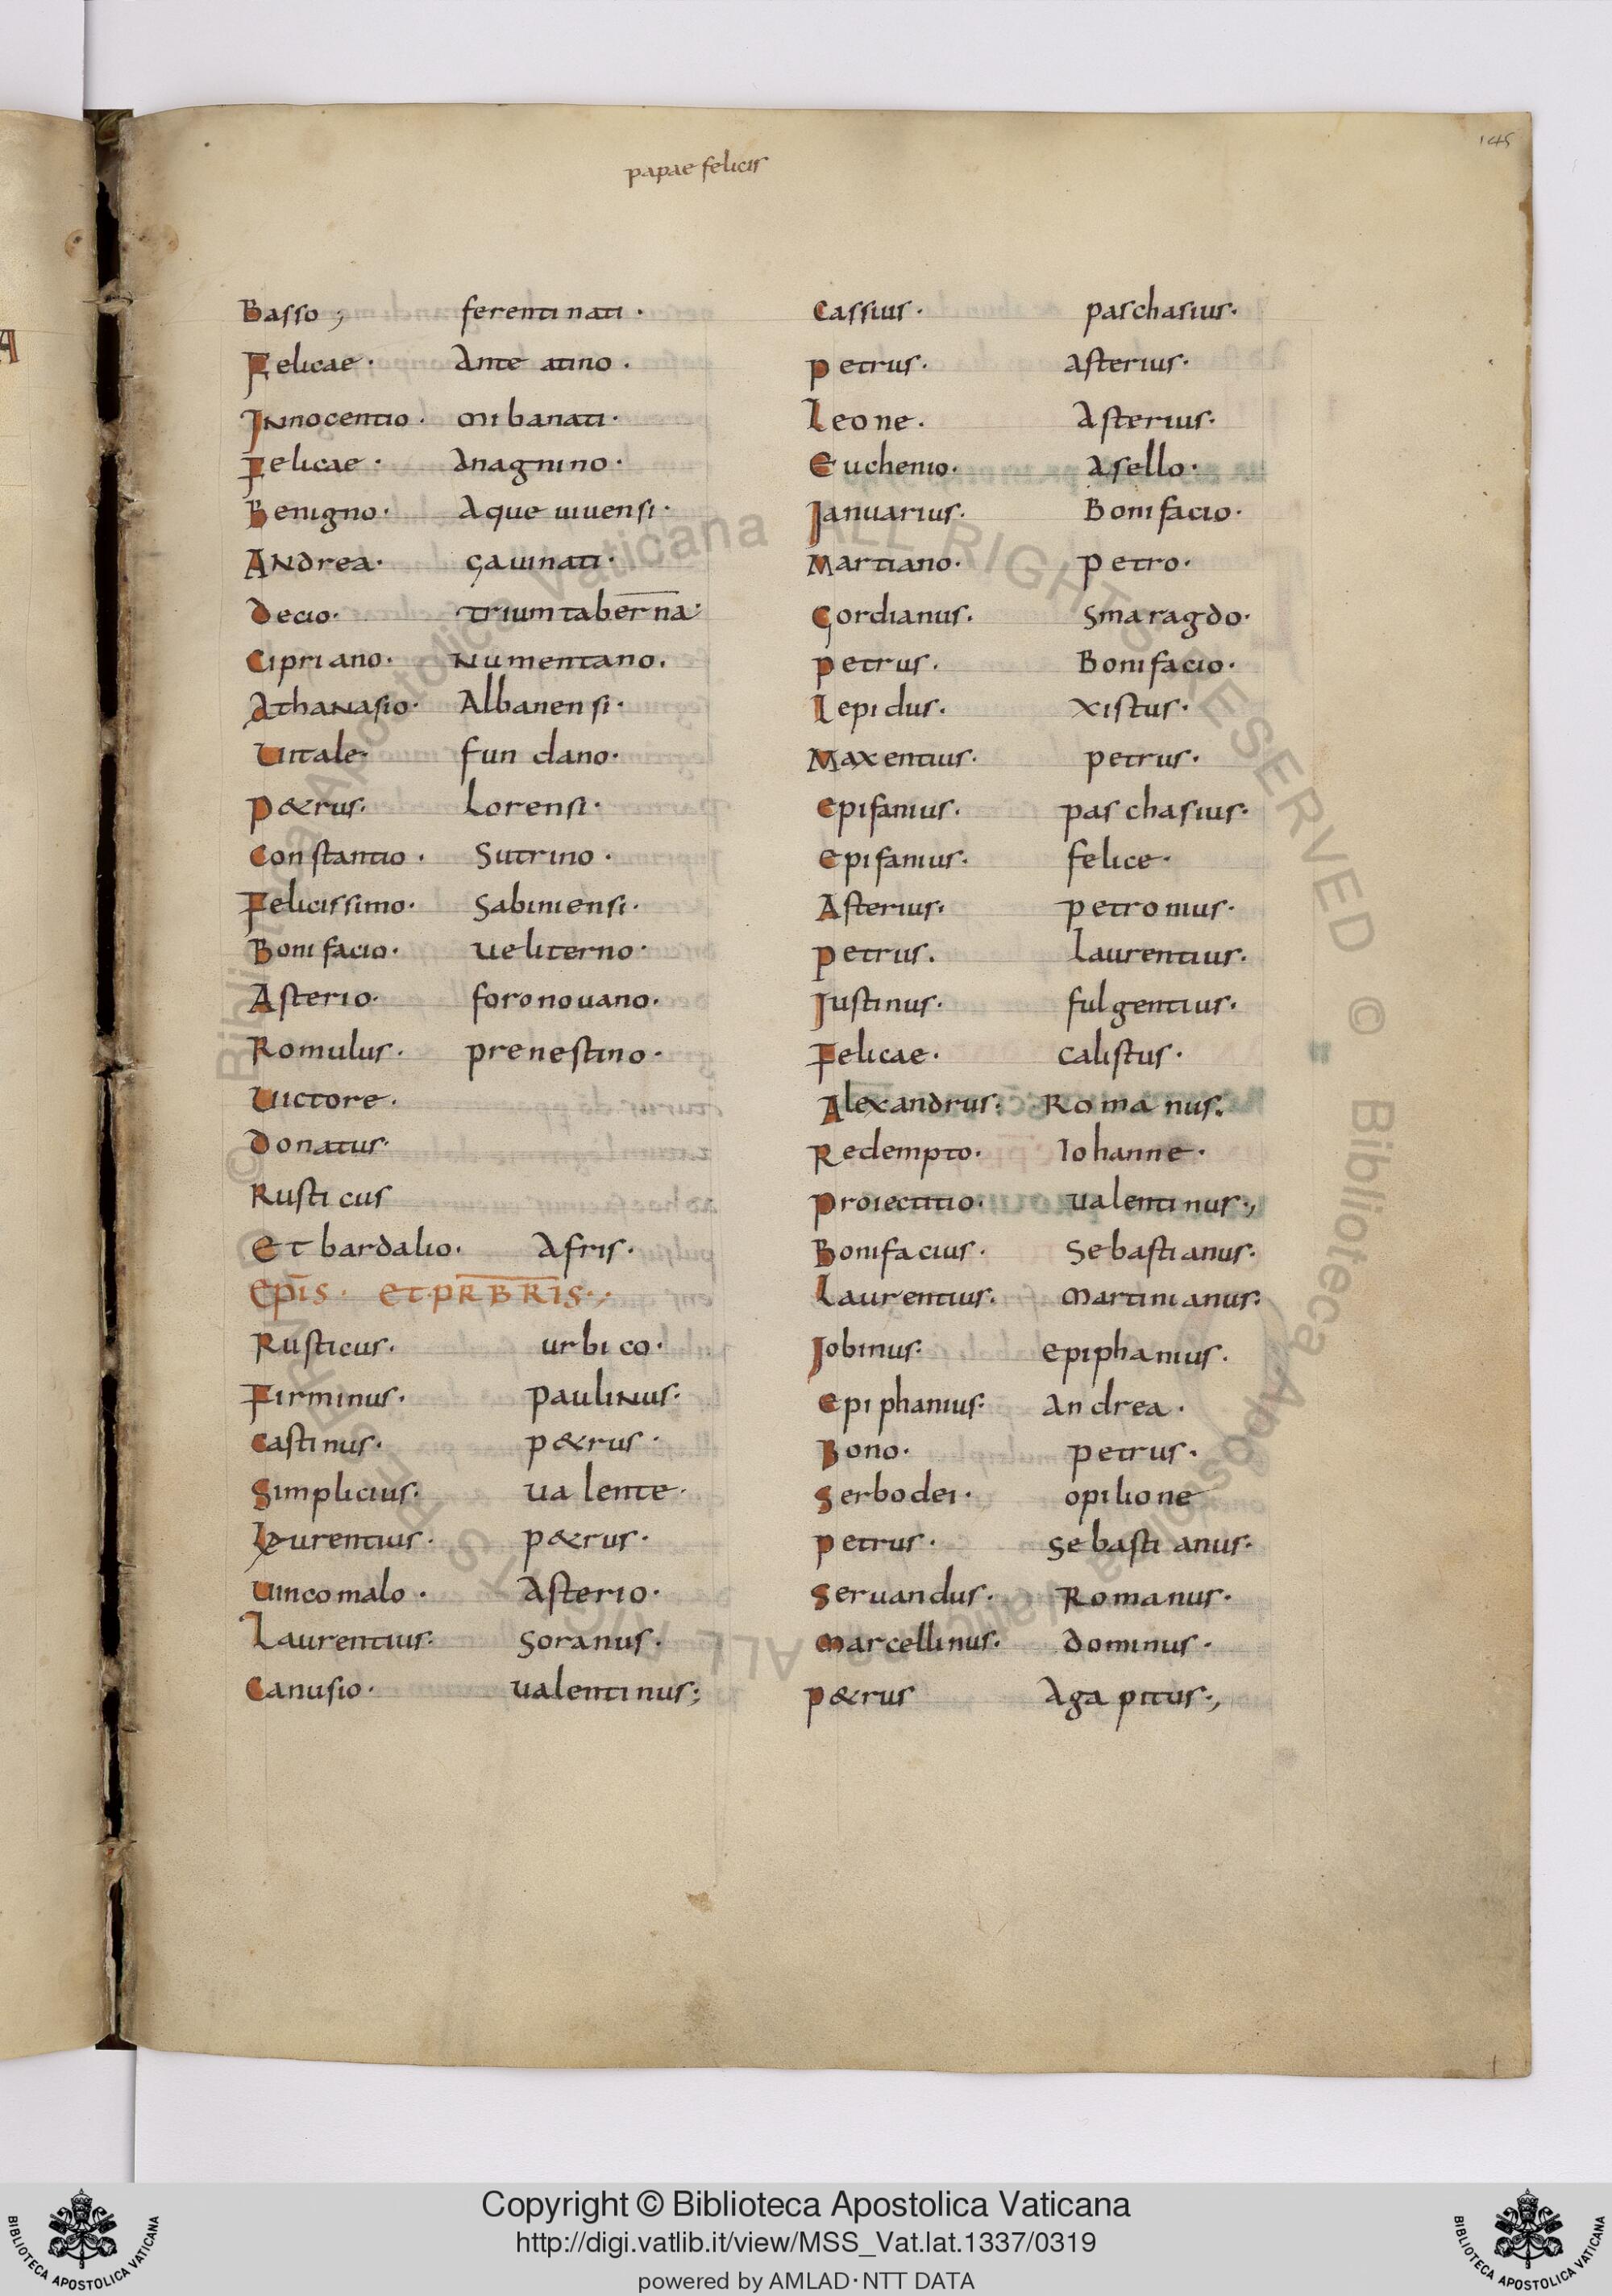 145
papae felicis
Basso; ferentinati·
Felicae· Ante atino·
Innocentio· mibanati·
Felicae· Anagnino·
Benigno· Aque uiuensi·
Andrea· Gauinati·
Decio· trium taberna·
Cipriano· Numentano·
Athanasio· Albanensi·
Uitale· fundano·
P&rus· Lorensi·
Constantio· Sutrino·
Felicissimo· Sabiniensi·
Bonifacio· ueliterno·
Asterio· foronouano·
Romulus· prenestino·
Uictore·
Donatus·
Rusticus
Et bardalio· Afris·
EPĪS· ET PR̄B̄R̄IS·,
Rusticus· urbico·
Firminus· paulinus·
Castinus· p&rus·
Simplicius· ualente·
Laurentius· p&rus·
Uincomalo· Asterio·
Laurentius· Soranus·
Canusio· ualentinus;
Cassius· paschasius·
Petrus· asterius·
Leone· Asterius·
Euchenio· Asello·
Januarius· Bonifacio·
Martiano· Petro·
Gordianus· Smaragdo·
Petrus· Bonifacio·
Lepidus· xistus·
Maxentius· petrus·
Epifanius· paschasius·
Epifanius· felice·
Asterius· petronius·
Petrus· laurentius·
Justinus· fulgentius·
Felicae· calistus·
Alexandrus· Romanus·
Redempto· Iohanne·
Proiectitio· ualentinus·,
Bonifacius· Sebastianus·
Laurentius· Martinianus·
Jobinus· epiphanius·
Epiphanius· andrea·
Bono· petrus·
Serbodei· opilione
Petrus· Sebastianus·
Seruandus· Romanus·
Marcellinus· dominus·
P&rus Agapitus·,
© Biblioteca Apostolica Vaticana ALL RIGHTS RESERVED
© Biblioteca Apostolica Vaticana ALL RIGHTS RESERVED
BIBLIOTECA APOSTOLICA VATICANA
Copyright © Biblioteca Apostolica Vaticana
http://digi.vatlib.it/view/MSS_Vat.lat.1337/0319
powered by AMLAD·NTT DATA
BIBLIOTECA APOSTOLICA VATICANA